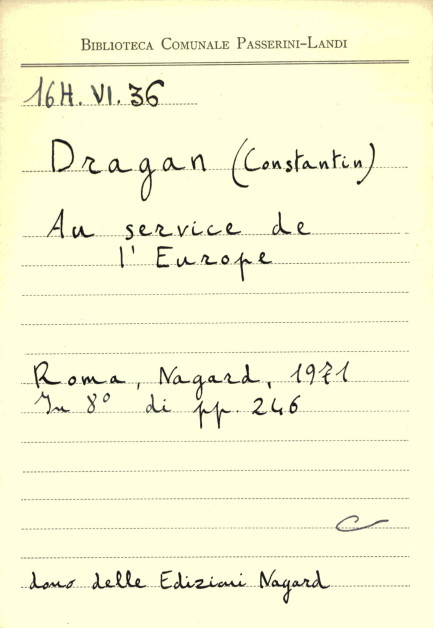 BIBLIOTECA COMUNALE PASSERINI-LANDI
16H. VI. 36
Dragan (Constantin)
Au service de
l'Europe
Roma, Nagard, 1971
In 8° di pp. 246
dono delle Edizioni Nagard